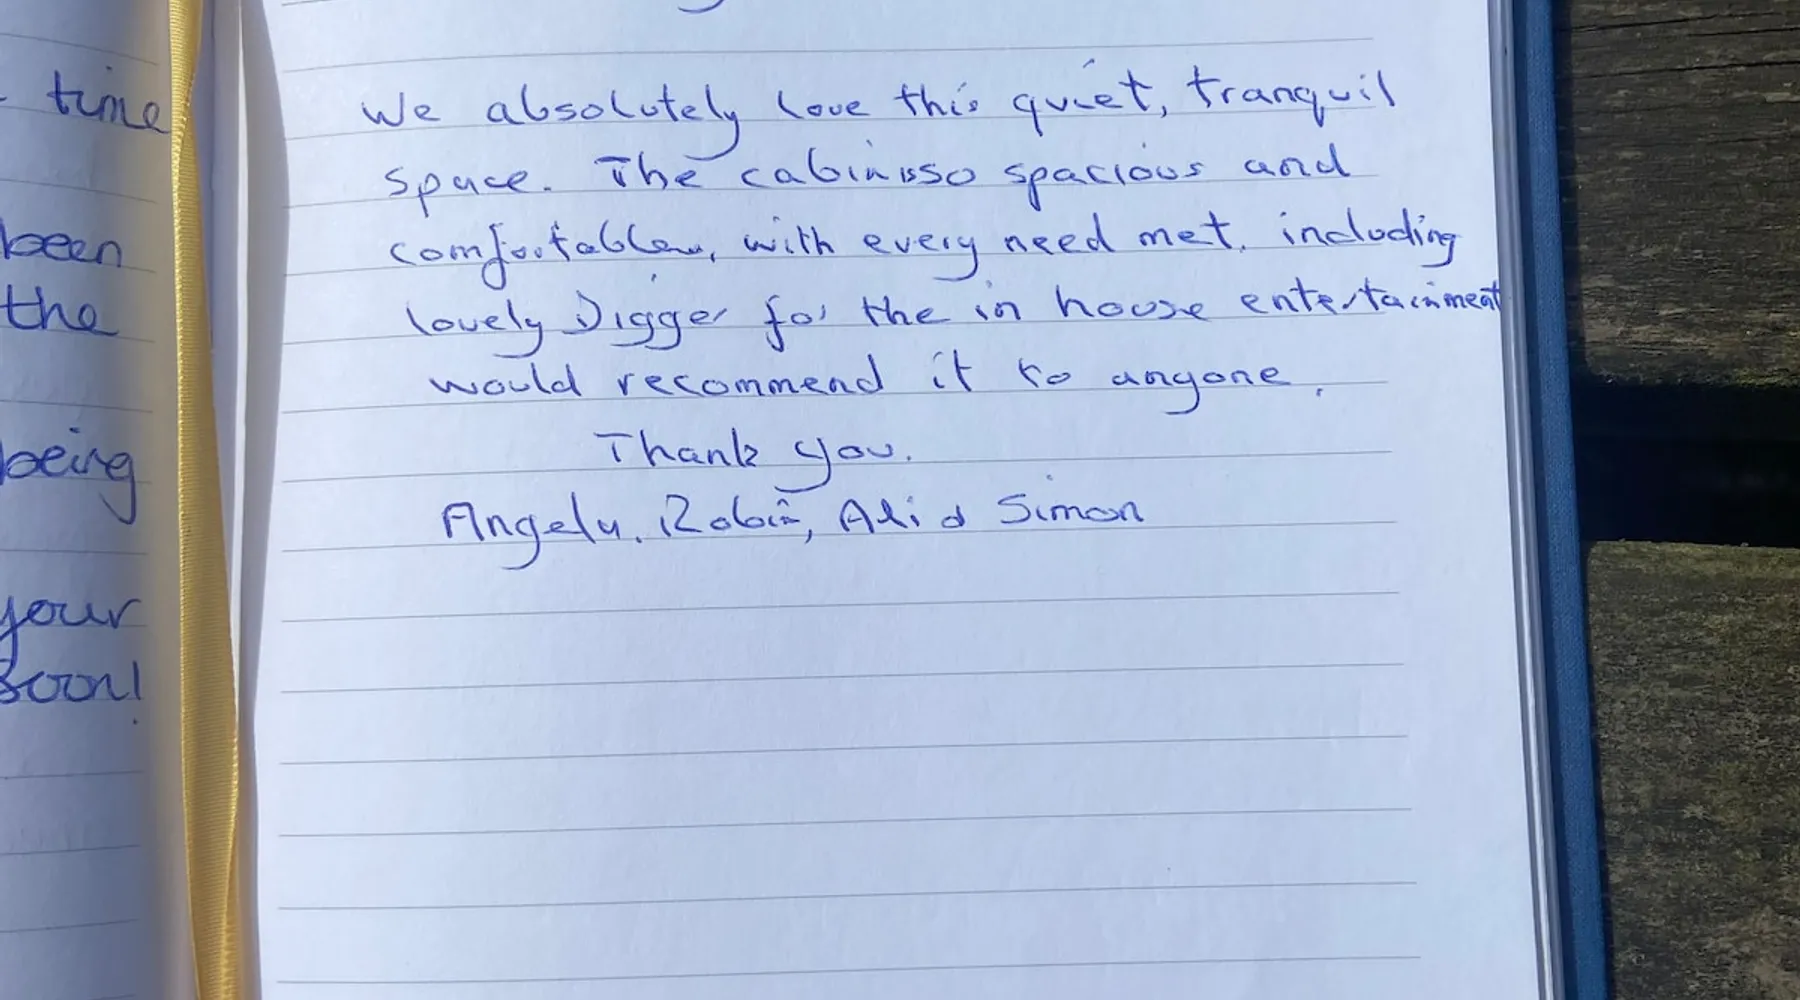 time
been
the
being
your
soon!
We absolutely love this quiet, tranquil
space. The cabin is so spacious and
comfortable, with every need met, including
lovely Digger for the in house entertainment
would recommend it to anyone.
Thank you.
Angela, Robin, Ali & Simon